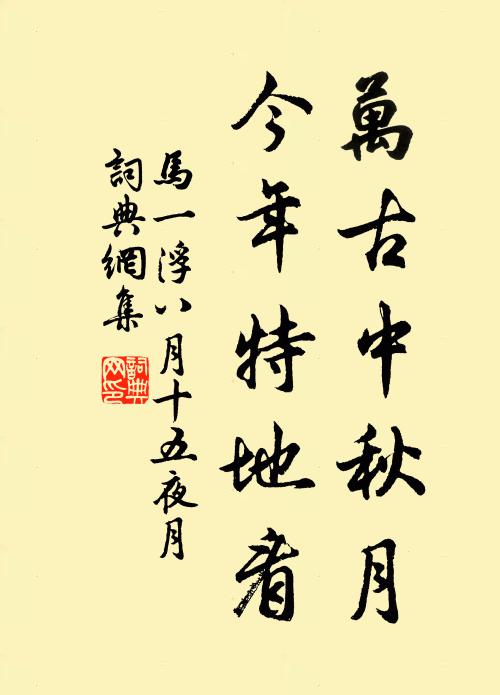 萬古中秋月
今年特地看
馬一浮八月十五夜月
詞典網集
詞典
网印